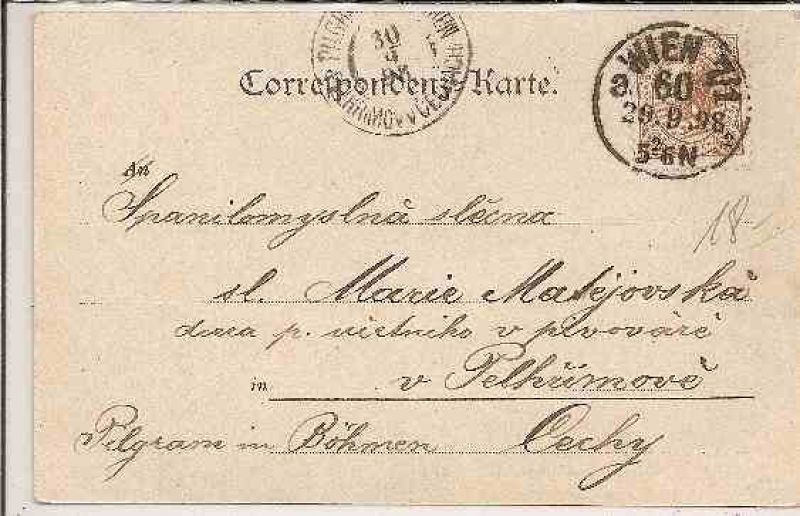 30
Correspondenz-Karte.
WIEN
60
29.9.98
5-6N
An
Spanilomyslná slečna
18-
sl. Marie Matějovská
dcera p. účetního v pivováře
in v Pelhřimově
Pilgram in Böhmen Čechy